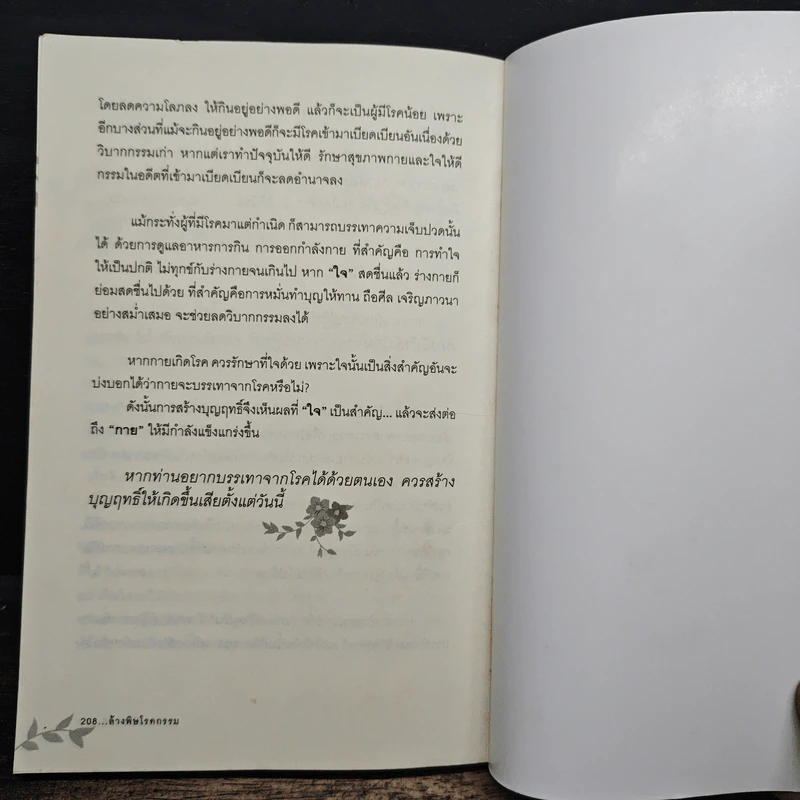 โดยลดความโลภลง ให้กินอยู่อย่างพอดี แล้วก็จะเป็นผู้มีโรคน้อย เพราะ
อีกบางส่วนที่แม้จะกินอยู่อย่างพอดีก็จะมีโรคเข้ามาเบียดเบียนอันเนื่องด้วย
วิบากกรรมเก่า หากแต่เราทำปัจจุบันให้ดี รักษาสุขภาพกายและใจให้ดี
กรรมในอดีตที่เข้ามาเบียดเบียนก็จะลดอำนาจลง
แม้กระทั่งผู้ที่มีโรคมาแต่กำเนิด ก็สามารถบรรเทาความเจ็บปวดนั้น
ได้ ด้วยการดูแลอาหารการกิน การออกกำลังกาย ที่สำคัญคือ การทำใจ
ให้เป็นปกติ ไม่ทุกข์กับร่างกายจนเกินไป หาก “ใจ” สดชื่นแล้ว ร่างกายก็
ย่อมสดชื่นไปด้วย ที่สำคัญคือการหมั่นทำบุญให้ทาน ถือศีล เจริญภาวนา
อย่างสม่ำเสมอ จะช่วยลดวิบากกรรมลงได้
หากกายเกิดโรค ควรรักษาที่ใจด้วย เพราะใจนั้นเป็นสิ่งสำคัญอันจะ
บ่งบอกได้ว่ากายจะบรรเทาจากโรคหรือไม่?
ดังนั้นการสร้างบุญฤทธิ์จึงเห็นผลที่ “ใจ” เป็นสำคัญ... แล้วจะส่งต่อ
ถึง “กาย” ให้มีกำลังแข็งแกร่งขึ้น
หากท่านอยากบรรเทาจากโรคได้ด้วยตนเอง ควรสร้าง
บุญฤทธิ์ให้เกิดขึ้นเสียตั้งแต่วันนี้
208...ล้างพิษโรคกรรม